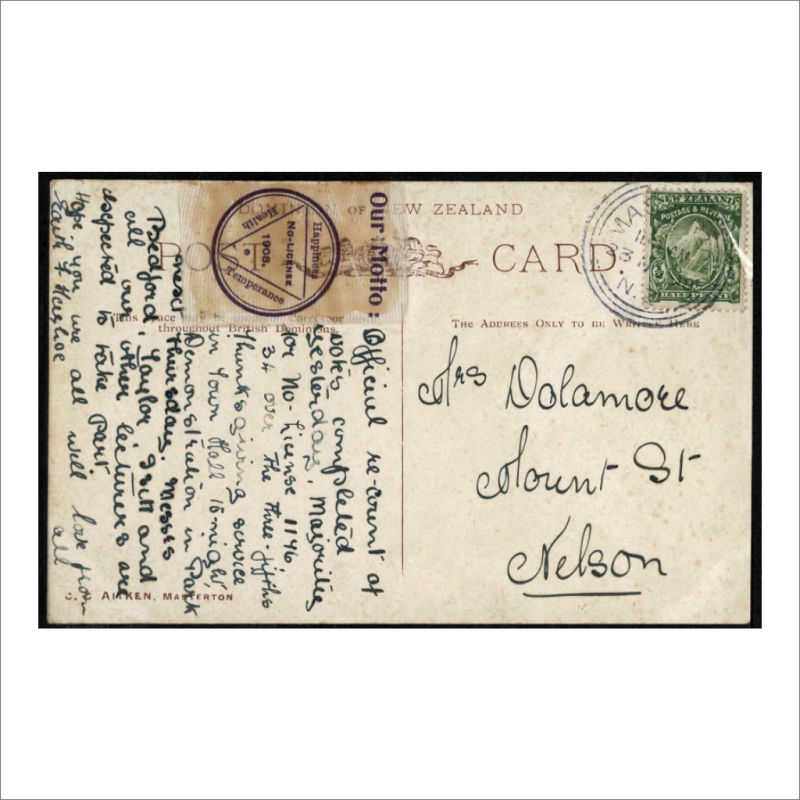 DOMINION OF NEW ZEALAND
POST CARD
Our Motto:
Health
Happiness
Temperance
NO-LICENSE
1908.
NEW ZEALAND
POSTAGE & REVENUE
HALF PENNY
throughout British Dominions.
THE ADDRESS ONLY TO BE WRITTEN HERE
Official re-count of
votes completed
yesterday. Majorities
for No-License 1146
34 over the three-fifths
Thanksgiving service
in Town Hall to-night,
Demonstration in Park
next Thursday. Messrs
Bedford, Taylor Isitt and
all our other lecturers are
expected to take part
Hope you are all well love from
all
Mrs Dolamore
Mount St
Nelson
AITKEN, MASTERTON